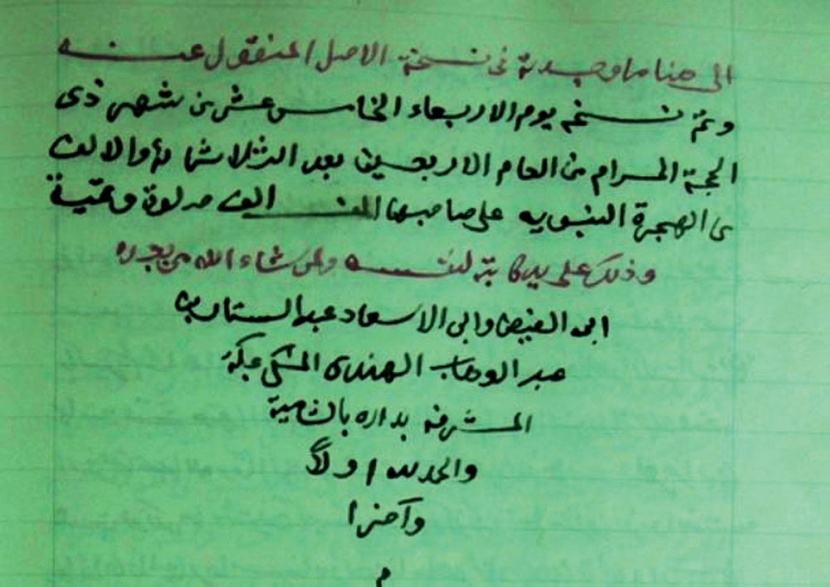 الى هنا ما وجدته فى نسخة الاصل المنقول عنه
وتم نسخه يوم الاربعاء الخامس عشر من شهر ذى
الحجة الحرام من العام الاربعين بعد الثلاثمائة والالف
من الهجرة النبويه على صاحبها الف الف صلوة وتحية
وذلك على يد كاتبه لنفسه ولمن شاء الله من بعده
ابى الفيض وابى الاسعاد عبد الستار بن
عبد الوهاب الهندى المكى بمكة
المشرفه بداره بالشامية
والحمد لله اولاً
وآخرا
م